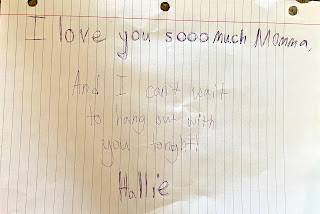 I love you sooo much Momma,
And I can't wait
to hang out with
you tonght!
Hallie